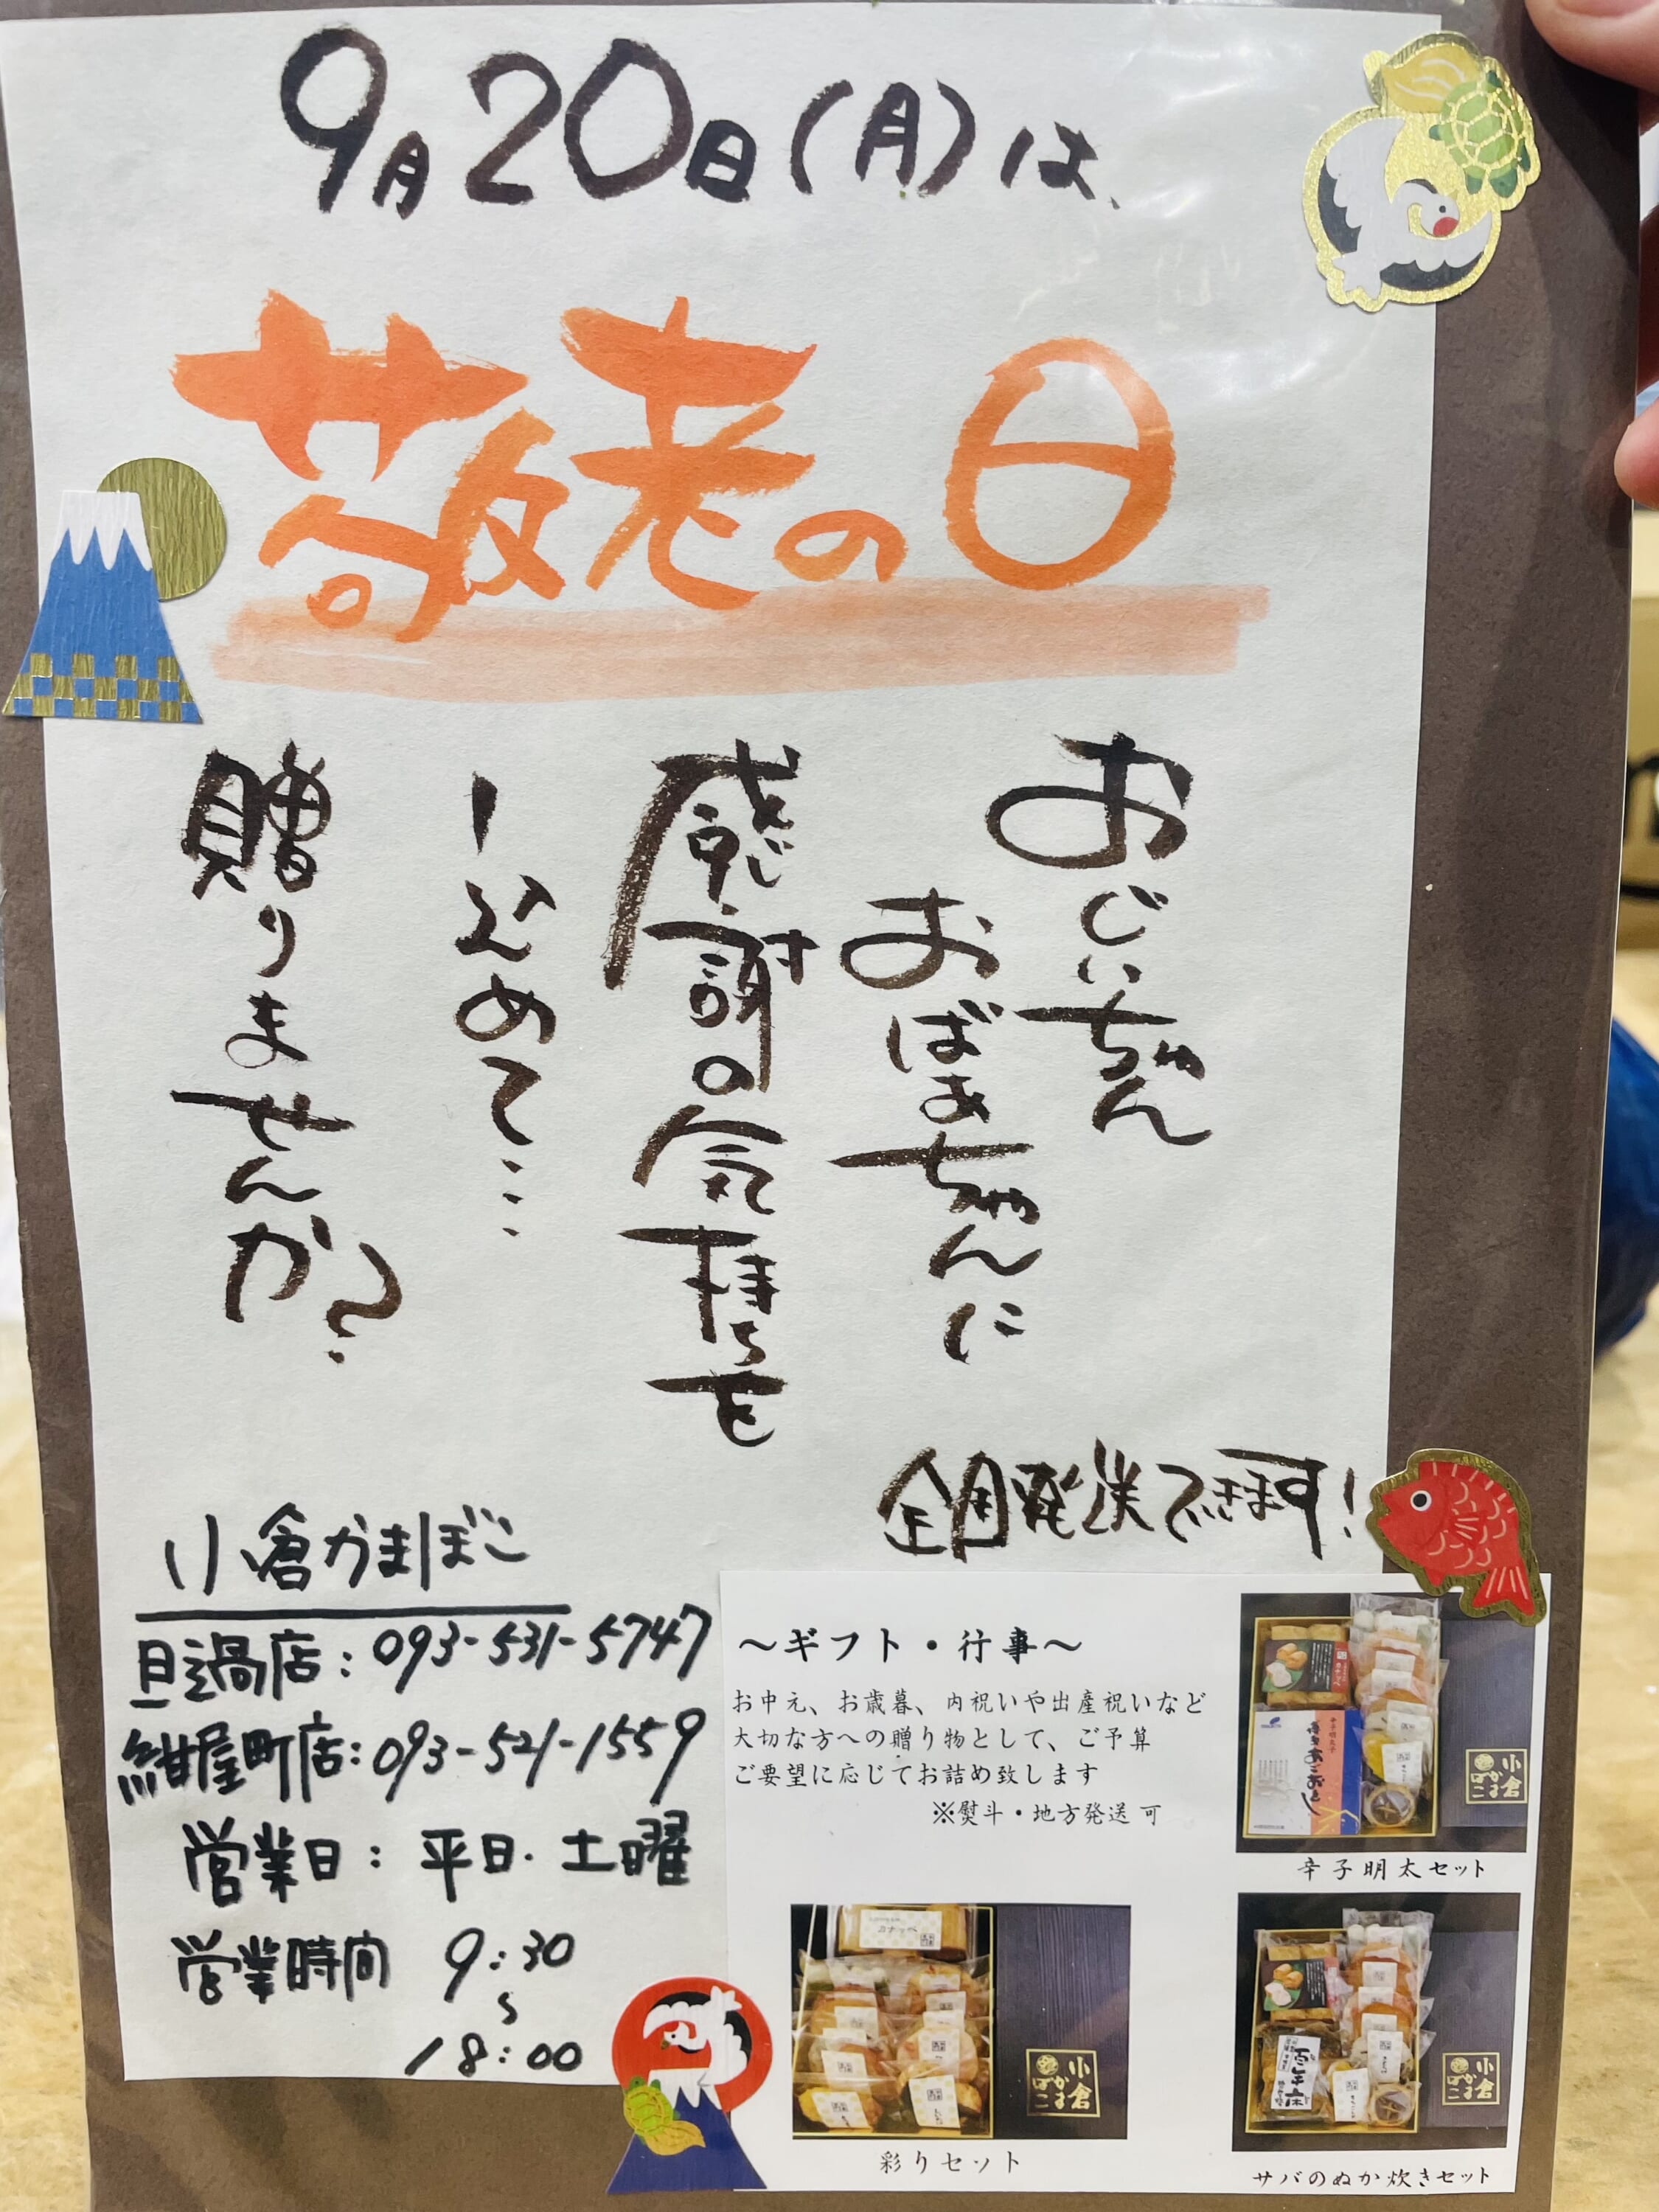 9月20日(月)は、
敬老の日
おじいちゃん
おばあちゃんに
感謝の気持を
込めて…
贈りませんか?
全国発送できます!
小倉かまぼこ
旦過店:093-531-5747
紺屋町店:093-521-1559
営業日:平日・土曜
営業時間 9:30
〜
18:00
〜ギフト・行事〜
お中元、お歳暮、内祝いや出産祝いなど
大切な方への贈り物として、ご予算
ご要望に応じてお詰め致します
※熨斗・地方発送可
小倉
かま
ぼこ
辛子明太セット
カナッペ
小倉
かま
ぼこ
彩りセット
小倉
かま
ぼこ
サバのぬか炊きセット